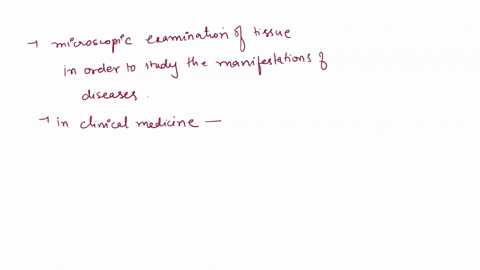 → microscopic examination of tissue
in order to study the manifestations of
diseases.
→ in clinical medicine —